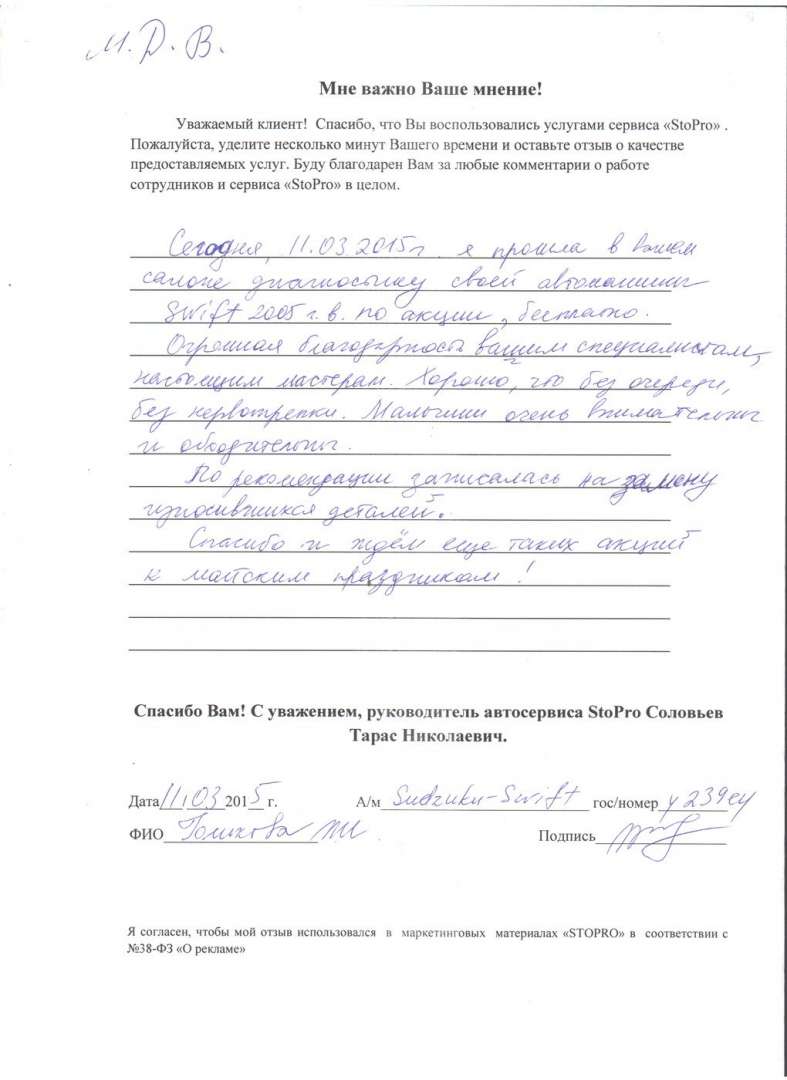 М. Д. В.
Мне важно Ваше мнение!
Уважаемый клиент! Спасибо, что Вы воспользовались услугами сервиса «StoPro» .
Пожалуйста, уделите несколько минут Вашего времени и оставьте отзыв о качестве
предоставляемых услуг. Буду благодарен Вам за любые комментарии о работе
сотрудников и сервиса «StoPro» в целом.
Сегодня, 11.03.2015г я прошла в вашем
салоне диагностику своей автомашины
Swift 2005 г.в. по акции, бесплатно.
Огромная благодарность вашим специалистам,
настоящим мастерам. Хорошо, что без очереди,
без нервотрепки. Мальчики очень внимательны
и обходительны.
По рекомендации записалась на замену
износившихся деталей.
Спасибо и ждём еще таких акций
к майским праздникам!
Спасибо Вам! С уважением, руководитель автосервиса StoPro Соловьев
Тарас Николаевич.
Дата 11.03 2015 г. А/м Sudzuku-Swift гос/номер у 239 еу
ФИО Подпись
Я согласен, чтобы мой отзыв использовался в маркетинговых материалах «STOPRO» в соответствии с
№38-ФЗ «О рекламе»